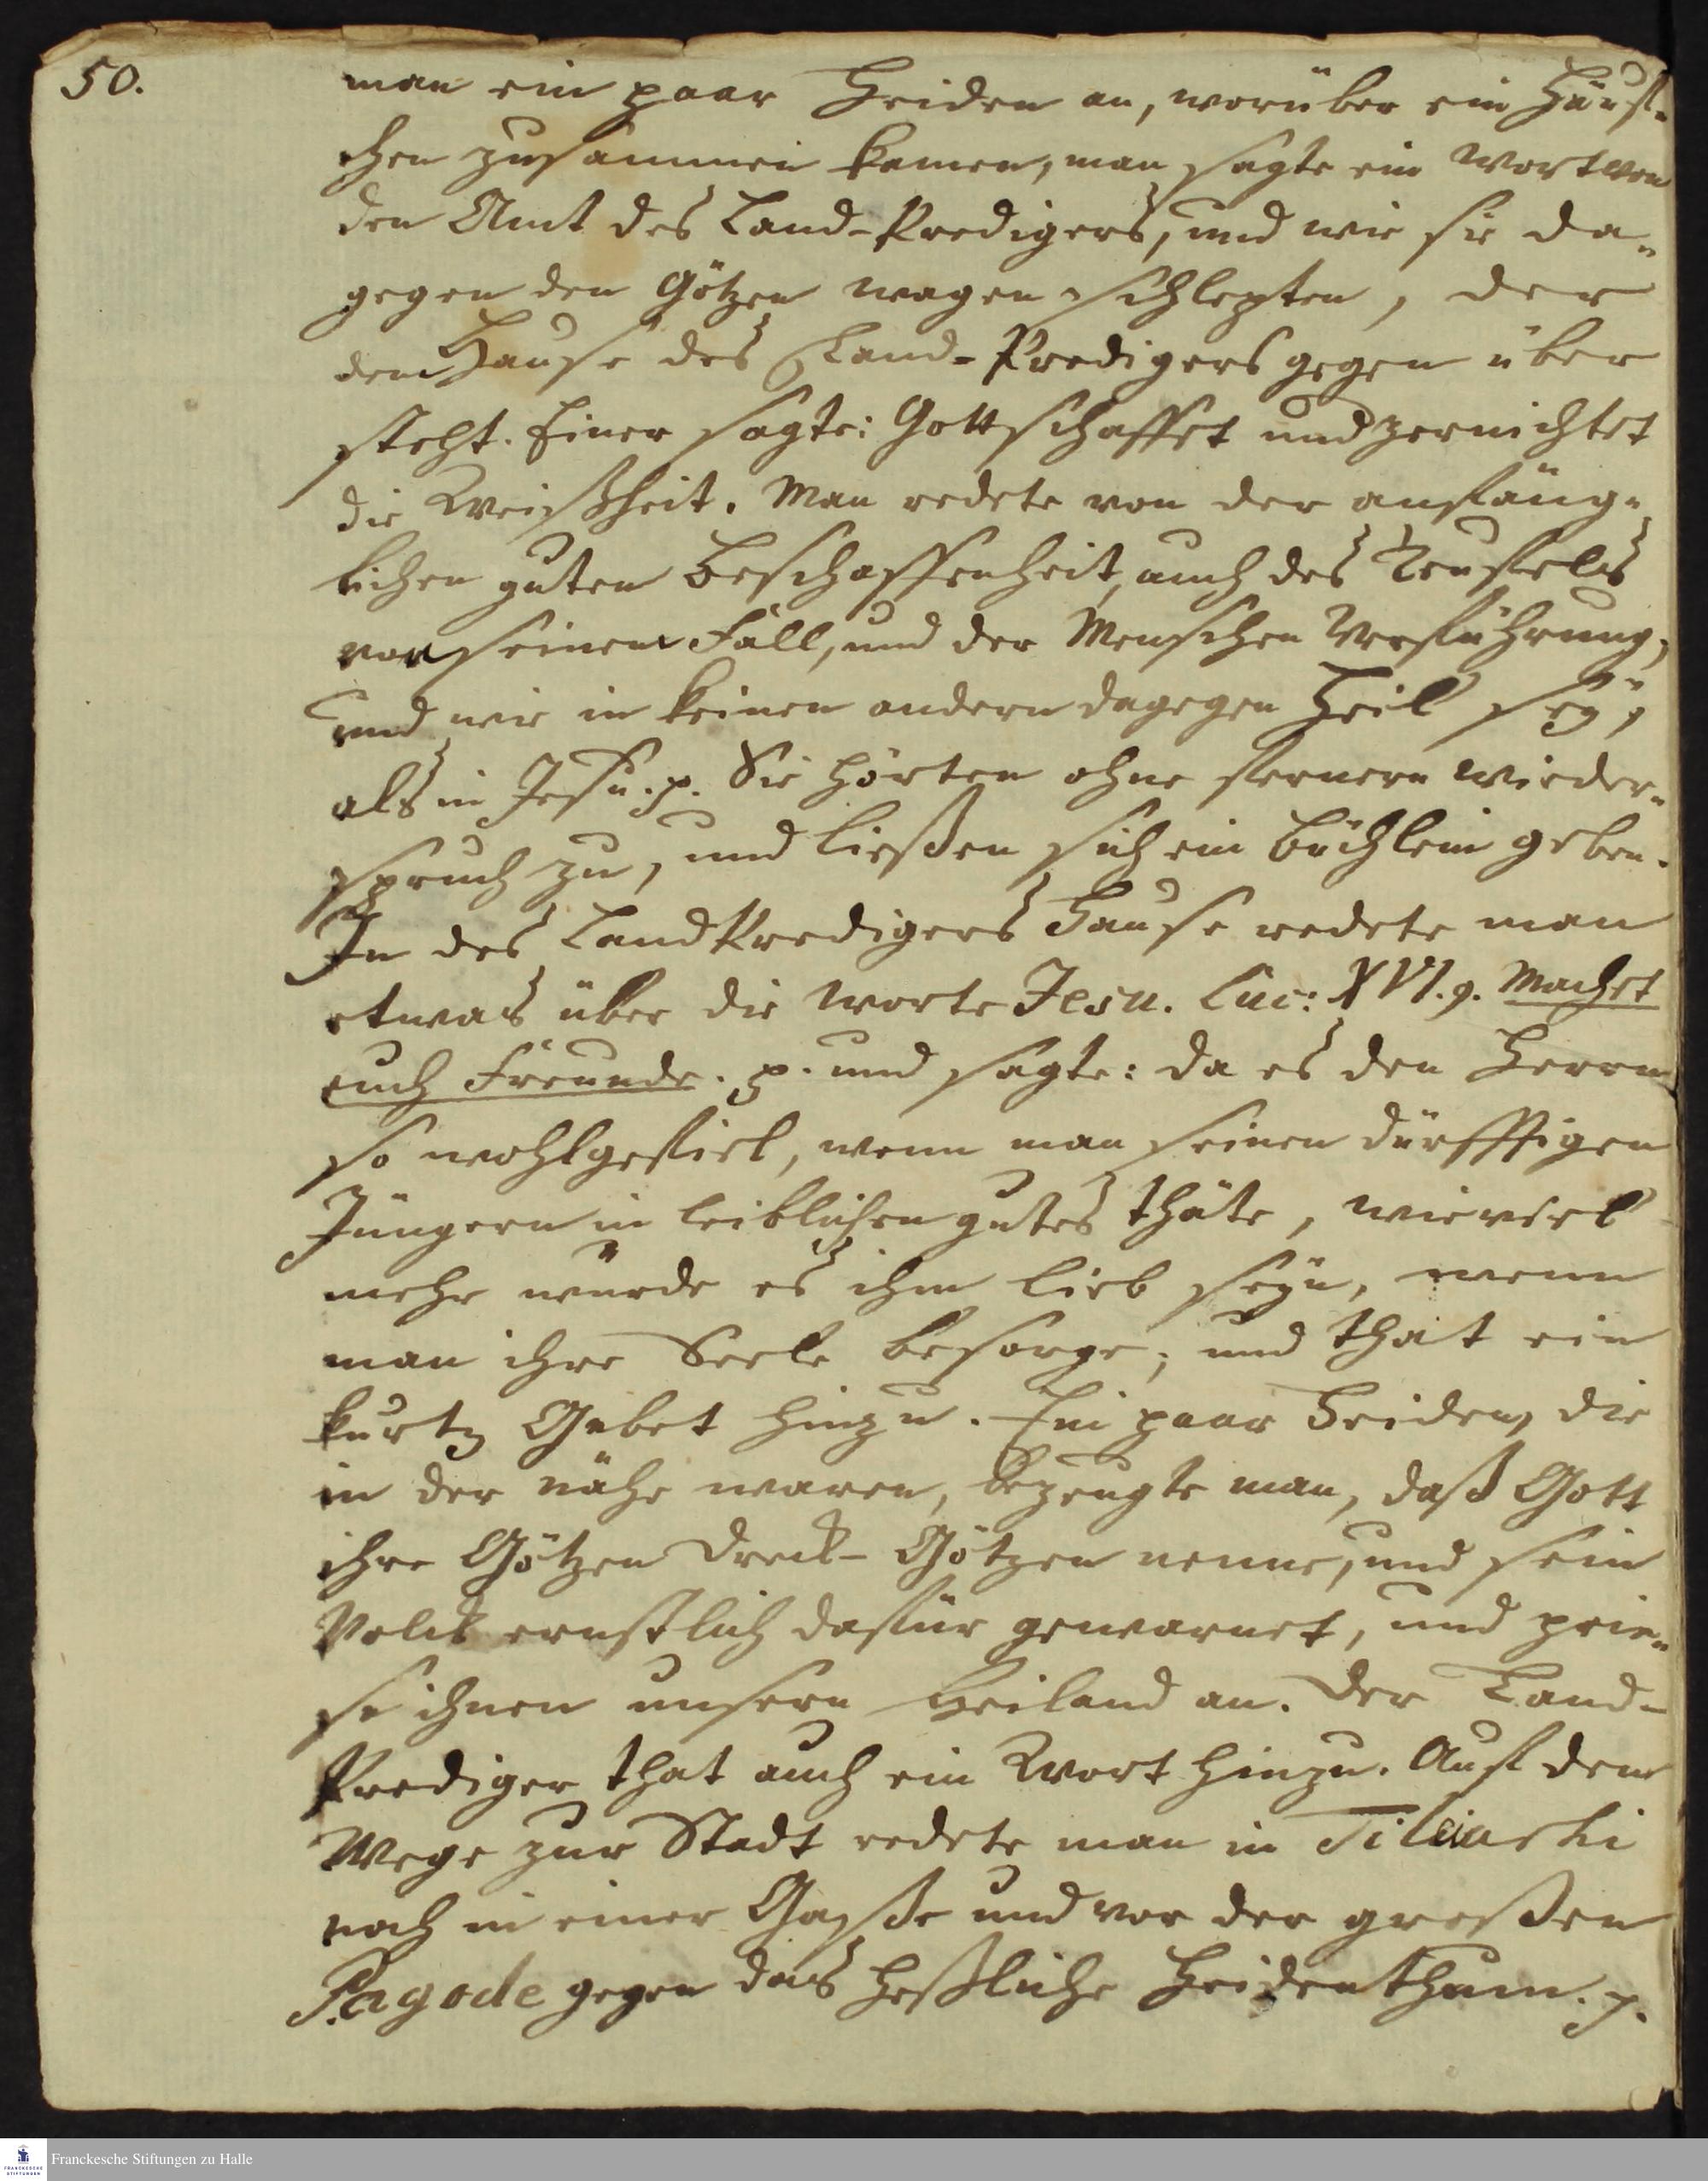 50.
man ein paar Heiden an, worüber ein Häuf-
chen zusammen kamen, man sagte ein Wort von
den Amt des Land-Predigers, und wie sie da-
gegen den Götzen wagen schlepten, der
dem Hause des Land-Predigers gegen über
steht. Einer sagte: Gott schaffet und zernichtet
die Weißheit. Man redete von der anfäng-
lichen guten Beschaffenheit, auch des Teufels
vor seinem Fall, und der Menschen Verführung,
und wie in keinen andern dagegen Heil seÿ,
als in Jesu. p. Sie hörten ohne fernern Wieder-
spruch zu, und ließen sich ein Büchlein geben.
In des LandPredigers Hause redete man
etwas über die Worte Jesu. Luc: XVI. 9. Machet
euch Freunde. p. und sagte: da es den Herrn
so wohlgefiel, wenn man seinen dürfftigen
Jüngern in leiblichen gutes thäte, wieviel
mehr würde es ihm lieb seÿn, wenn
man ihre Seele besorge; und that ein
kurtz Gebet hinzu. Ein paar Heiden, die
in der nähe waren, bezeugte man, daß Gott
ihre Götzen Dreck-Götzen nenne, und sein
Volck ernstlich dafür gewarnet, und prie-
se ihnen unsern Heiland an. Der Land-
Prediger that auch ein Wort hinzu. Auf dem
Wege zur Stadt redete man in Tileiarhi
noch in einer Gaße und vor der großen
Pagode gegen das heßliche Heidenthum. p.
Franckesche Stiftungen zu Halle